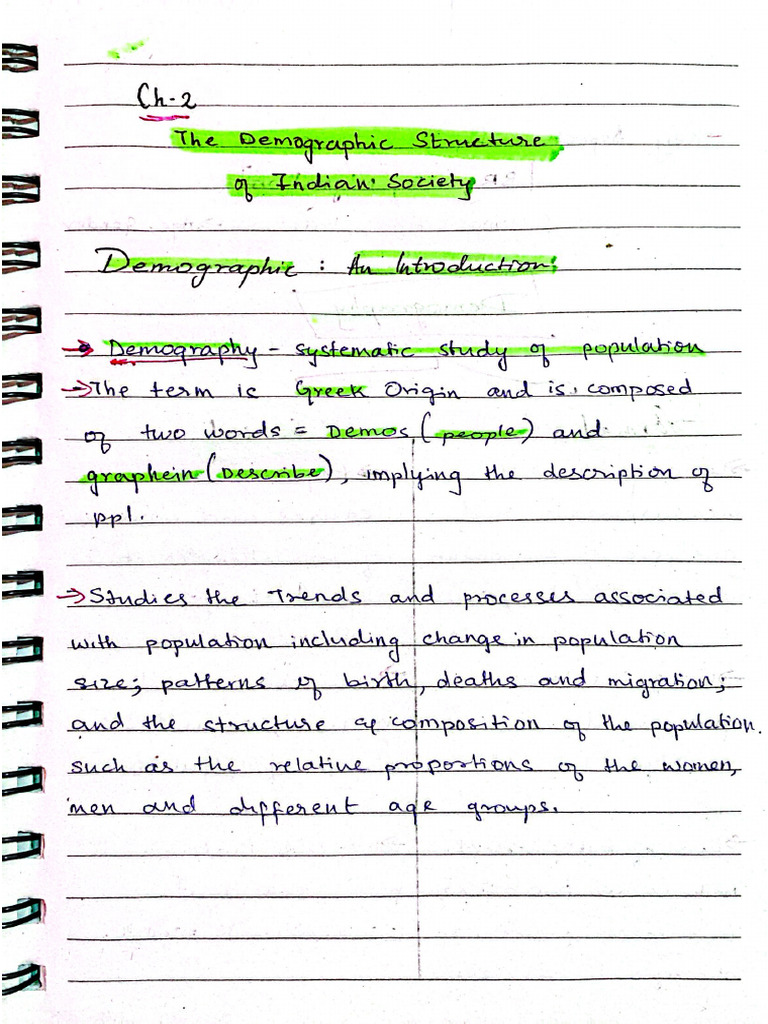 Ch-2
The Demographic Structure
of Indian Society
Demographic : An Introduction:
→ Demography - systematic study of population
→ The term is Greek Origin and is composed
of two words = Demos (people) and
graphein (Describe), implying the description of
ppl.
→ Studies the Trends and processes associated
with population including change in population
size; patterns of birth, deaths and migration;
and the structure & composition of the population.
such as the relative proportions of the women,
men and different age groups.